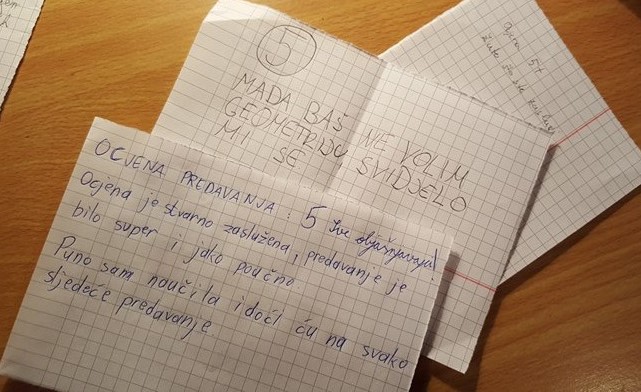 5
MADA BAŠ NE VOLIM
GEOMETRIJU SVIDJELO
MI SE
Ocjena 5+
OCJENA PREDAVANJA : 5 Sve objašnjavaju!
Ocjena je stvarno zaslužena, predavanje je
bilo super i jako poučno
Puno sam naučila i doći ću na svako
sljedeće predavanje